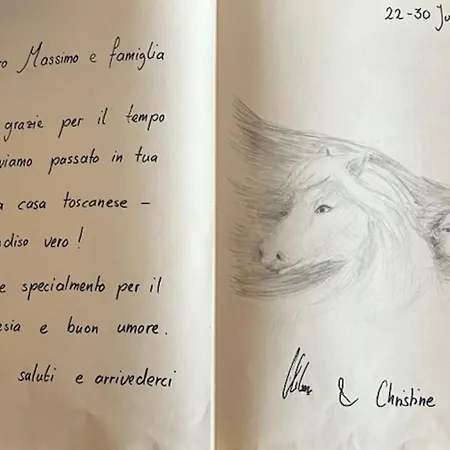 Massimo e famiglia
grazie per il tempo
passato in tua
casa toscanese –
vero!
e specialmento per il
e buon umore.
saluti e arrivederci
22-30
& Christine